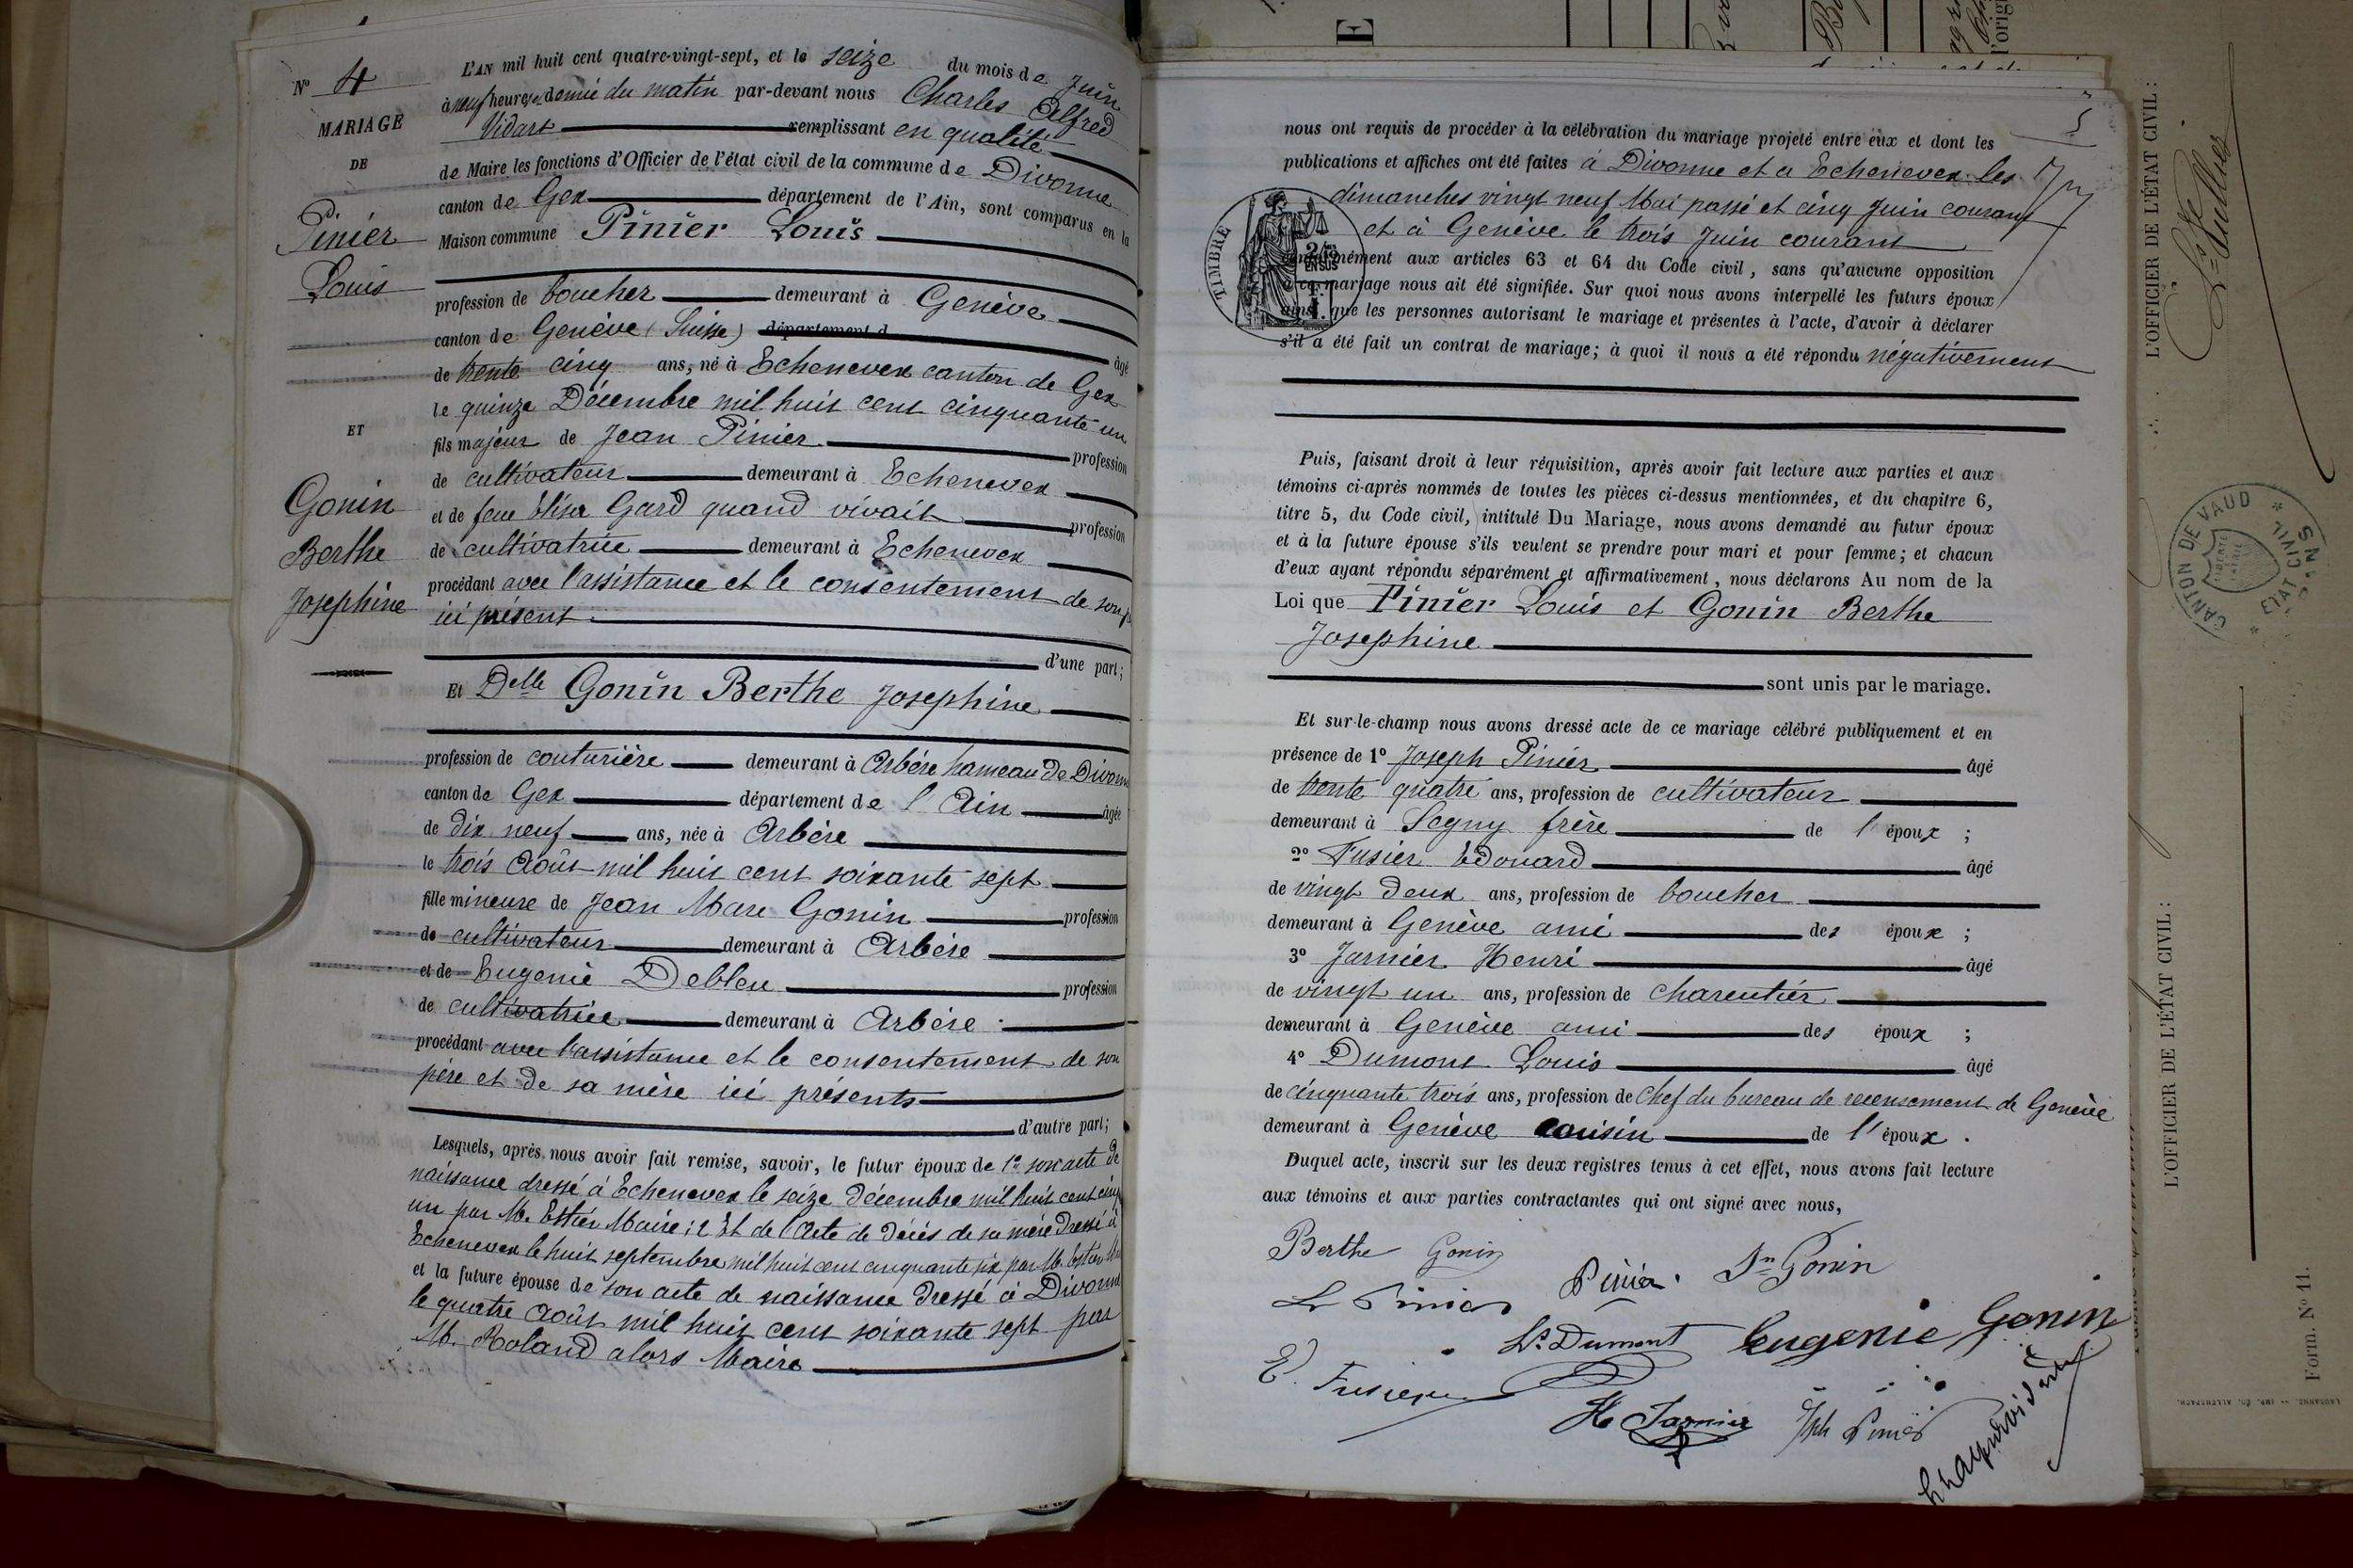 N° 4
MARIAGE
DE
Pinier
Louis
ET
Gonin
Berthe
Josephine
L'AN mil huit cent quatre-vingt-sept, et le seize du mois de Juin
à neuf heures et demie du matin par-devant nous Charles Alfred
Vidart remplissant en qualité
de Maire les fonctions d'Officier de l'état civil de la commune de Divonne
canton de Gex département de l'Ain, sont comparus en la
Maison commune Pinier Louis
profession de boucher demeurant à Genève
canton de Genève (Suisse) département d âgé
de trente cinq ans, né à Echenevex canton de Gex
le quinze Décembre mil huit cent cinquante un
fils majeur de Jean Pinier profession
de cultivateur demeurant à Echenevex
et de feue Elisa Gard quand vivait profession
de cultivatrice demeurant à Echenevex
procédant avec l'assistance et le consentement de son p
ici présent
d'une part;
Et Delle Gonin Berthe Josephine
profession de couturière demeurant à Arbère hameau de Divonne
canton de Gex département de l'Ain âgée
de dix neuf ans, née à Arbère
le trois Août mil huit cent soixante sept
fille mineure de Jean Marc Gonin profession
de cultivateur demeurant à Arbère
et de Eugenie Debleu profession
de cultivatrice demeurant à Arbère
procédant avec l'assistance et le consentement de son
père et de sa mère ici présents
d'autre part;
Lesquels, après nous avoir fait remise, savoir, le futur époux de 1° son acte de
naissance dressé à Echenevex le seize décembre mil huit cent cinq
un par M. Estier Maire; 2 Et de l'Acte de décès de sa mère dressé à
Echenevex le huit septembre mil huit cent cinquante six par M. Estier
et la future épouse de son acte de naissance dressé à Divonne
le quatre Août mil huit cent soixante sept par
M. Roland alors Maire
5
nous ont requis de procéder à la célébration du mariage projeté entre eux et dont les
publications et affiches ont été faites à Divonne et à Echenevex les
dimanches vingt neuf Mai passé et cinq Juin courant
et à Genève le trois Juin courant
TIMBRE
2/10mes
EN SUS
conformément aux articles 63 et 64 du Code civil, sans qu'aucune opposition
à ce mariage nous ait été signifiée. Sur quoi nous avons interpellé les futurs époux
ainsi que les personnes autorisant le mariage et présentes à l'acte, d'avoir à déclarer
s'il a été fait un contrat de mariage; à quoi il nous a été répondu négativement
Puis, faisant droit à leur réquisition, après avoir fait lecture aux parties et aux
témoins ci-après nommés de toutes les pièces ci-dessus mentionnées, et du chapitre 6,
titre 5, du Code civil, intitulé Du Mariage, nous avons demandé au futur époux
et à la future épouse s'ils veulent se prendre pour mari et pour femme; et chacun
d'eux ayant répondu séparément et affirmativement, nous déclarons Au nom de la
Loi que Pinier Louis et Gonin Berthe
Josephine
sont unis par le mariage.
Et sur-le-champ nous avons dressé acte de ce mariage célébré publiquement et en
présence de 1° Joseph Pinier âgé
de trente quatre ans, profession de cultivateur
demeurant à Segny frère de l'époux;
2° Fusier Edouard âgé
de vingt deux ans, profession de boucher
demeurant à Genève ami des époux;
3° Jarnier Henri âgé
de vingt un ans, profession de charcutier
demeurant à Genève ami des époux;
4° Dumont Louis âgé
de cinquante trois ans, profession de Chef du bureau de recensement de Genève
demeurant à Genève cousin de l'époux.
Duquel acte, inscrit sur les deux registres tenus à cet effet, nous avons fait lecture
aux témoins et aux parties contractantes qui ont signé avec nous,
Berthe Gonin
L Pinier Pinier Jn Gonin
Ls Dumont Eugenie Gonin
E. Fusier
H Jarnier Jph Pinier
L'OFFICIER DE L'ÉTAT CIVIL:
CANTON DE VAUD
ETAT CIVIL
L'OFFICIER DE L'ÉTAT CIVIL:
Form. N° 11.